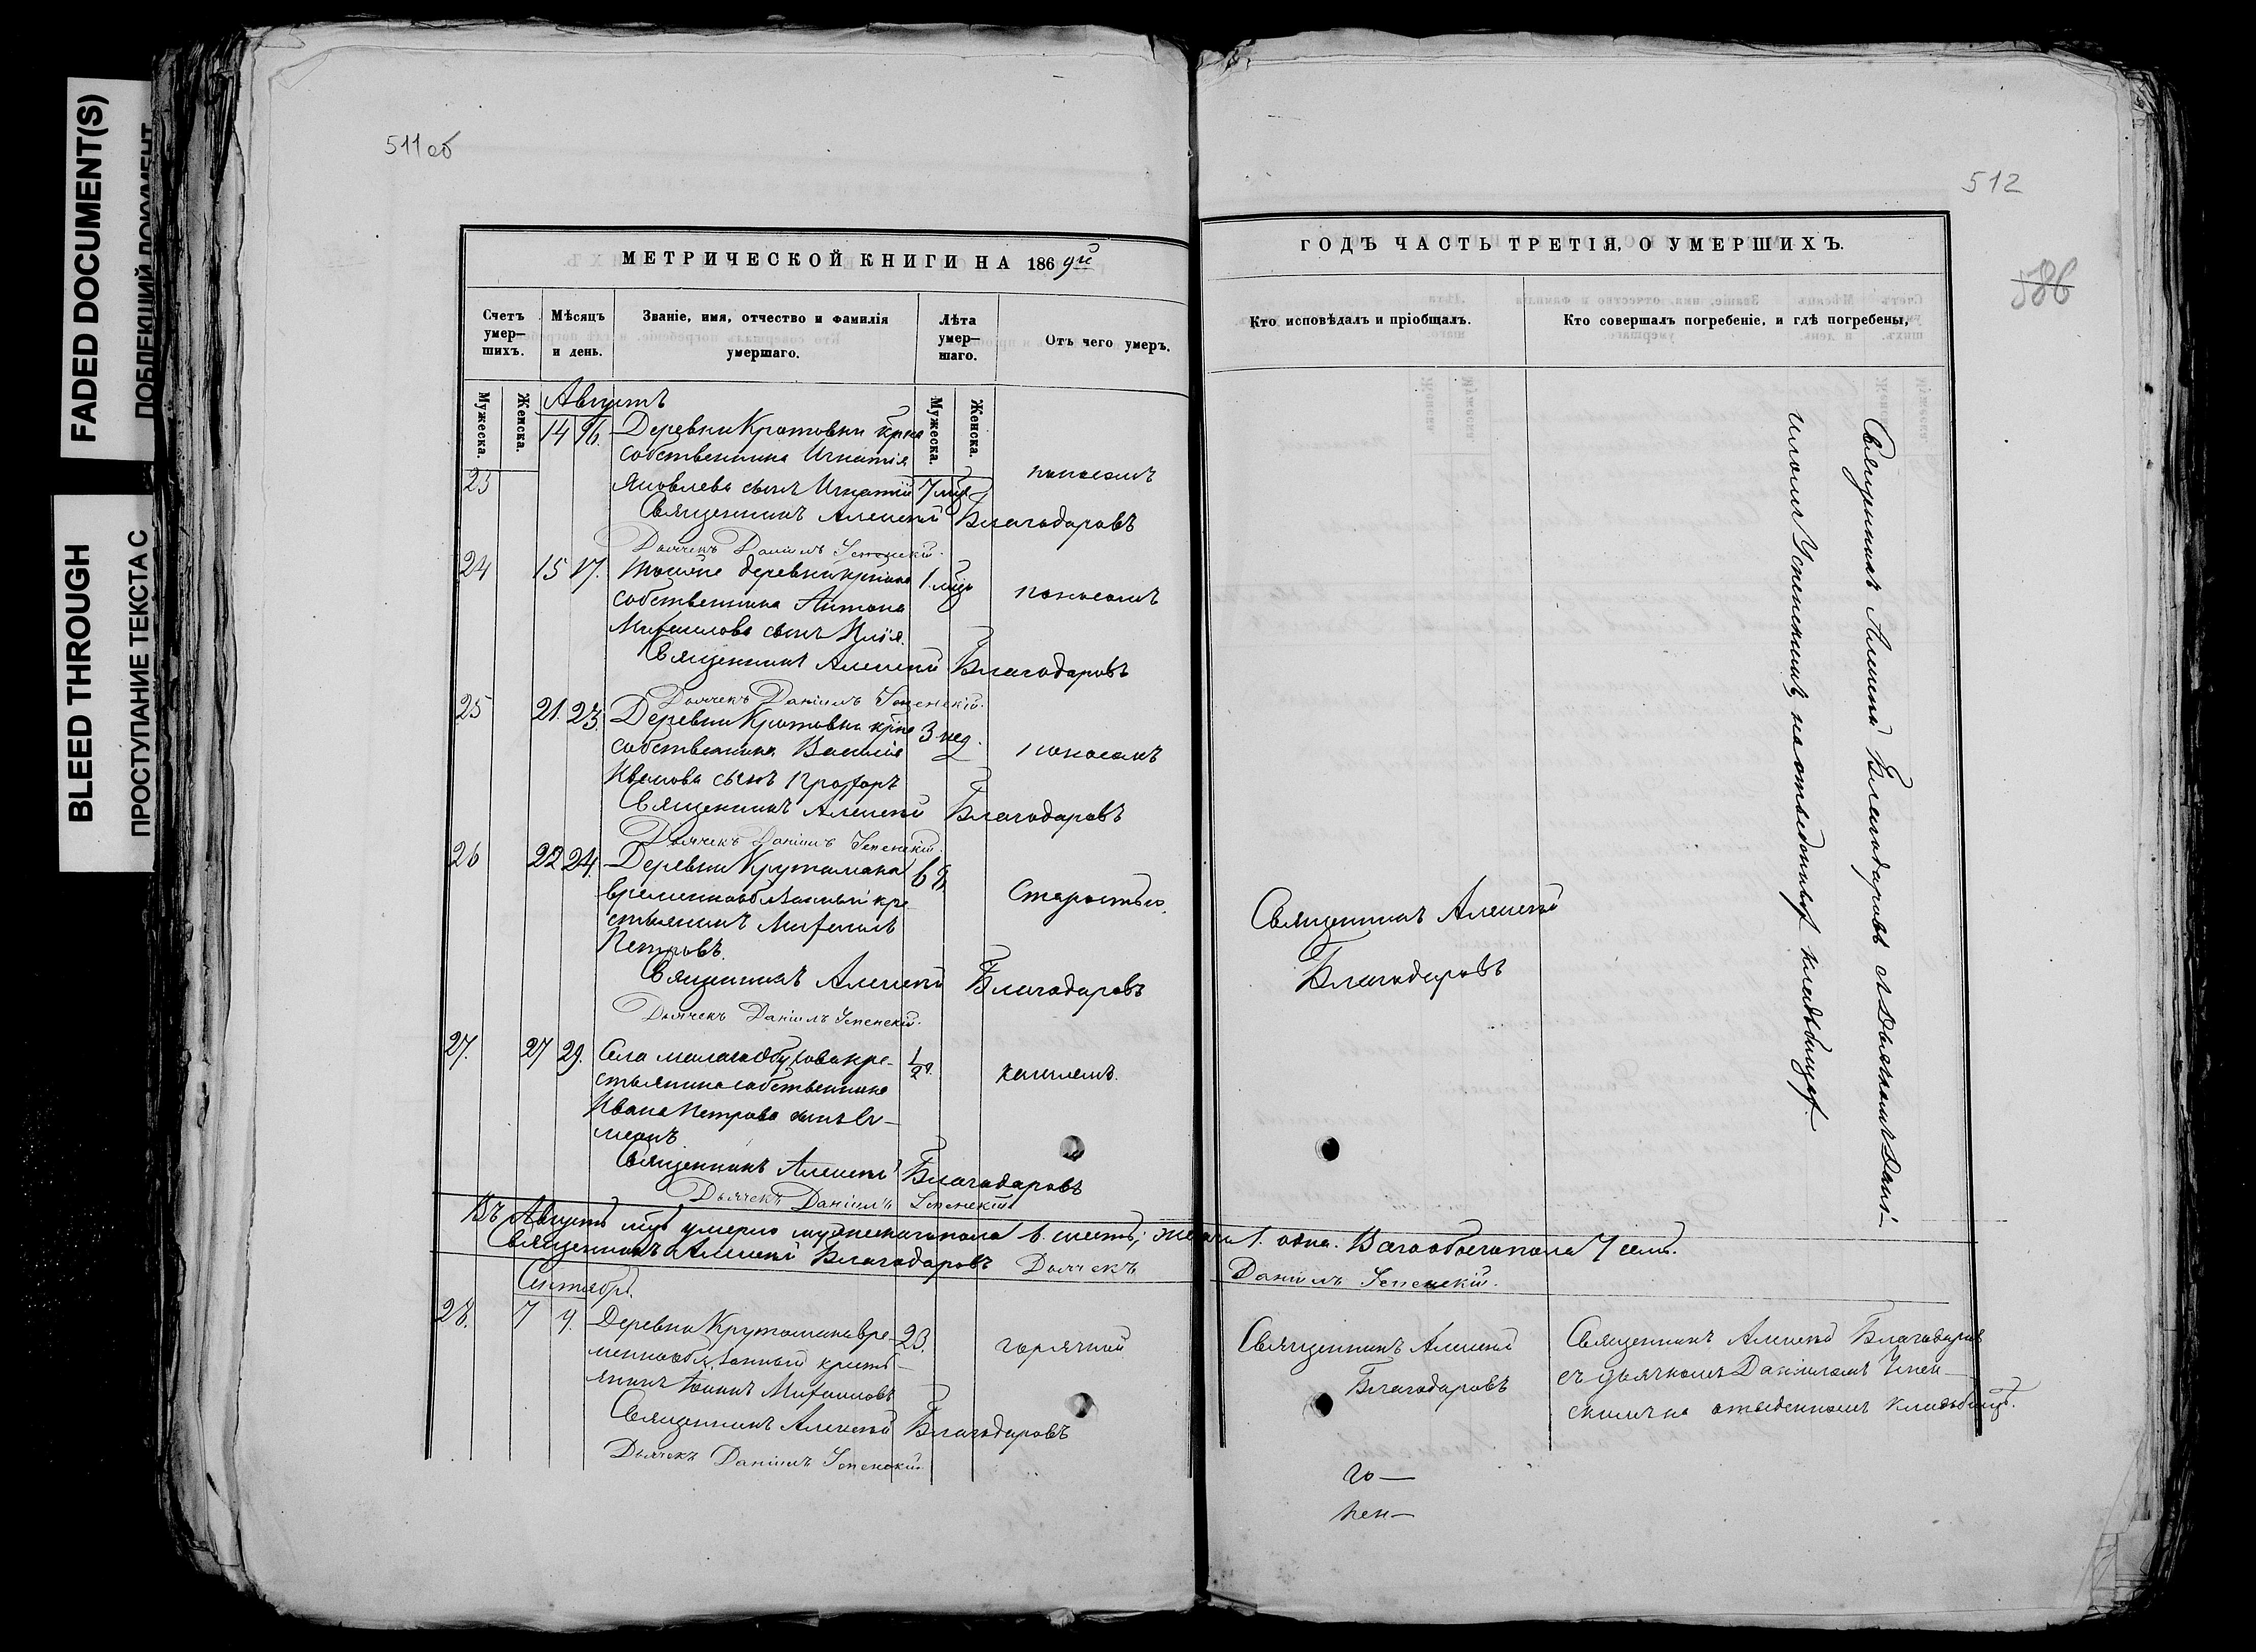 FADED DOCUMENT(S)
ПОБЛЕКШИЙ ДОКУМЕНТ
BLEED THROUGH
ПРОСТУПАНИЕ ТЕКСТА С
511 об
МЕТРИЧЕСКОЙ КНИГИ НА 1869й
Счетъ умер-шихъ.
Мѣсяцъ и день.
Званіе, имя, отчество и фамилія умершаго.
Лѣта умер-шаго.
Отъ чего умеръ.
Мужеска.
Женска.
Мужеска.
Женска.
Августъ
14 16. Деревни Кротовки
собственника Игнатія
23 Яковлева сынъ Игнатій 7 мцв поносомъ
Священникъ Алексій Благодаровъ
Дьячекъ Даніилъ Успенскій.
24 15 17. деревни 1. мцъ
собственника Антона поносомъ
Михаилова сынъ Илія.
Священникъ Алексій Благодаровъ
Дьячекъ Даніилъ Успенскій.
25 21. 23. Деревни Кротовки 3 нед.
собственника Василія поносомъ
Иванова сынъ
Священникъ Алексій Благодаровъ
Дьячекъ Даніилъ Успенскій.
26 22 24. Деревни
временнообязанный кре- старостью.
стьянинъ Михаилъ
Петровъ.
Священникъ Алексій Благодаровъ
Дьячекъ Даніилъ Успенскій.
27. 27 29. Села кре- 1/2 г. кашлемъ.
стьянина собственника
Ивана Петрова сынъ Си-
меонъ
Священникъ Алексій Благодаровъ
Дьячекъ Даніилъ Успенскій
Въ Августѣ мцѣ умерло мужескаго пола 6. шесть, женска 1. одна. Всего обоего пола 7 семь.
Священникъ Алексій Благодаровъ Дьячекъ Даніилъ Успенскій.
Сентябрь.
28. 7 9. Деревни вре- 23. горячкой
меннообязанный кресть-
янинъ Михаиловъ
Священникъ Алексій Благодаровъ
Дьячекъ Даніилъ Успенскій
512
586
ГОДЪ ЧАСТЬ ТРЕТІЯ, О УМЕРШИХЪ.
Кто исповѣдалъ и пріобщалъ.
Кто совершалъ погребеніе, и гдѣ погребены,
Священникъ Алексій
Благодаровъ
Священникъ Алексій Благодаровъ съ Дьячкомъ Дані-
иломъ Успенскимъ, на отведенныхъ кладбищах.
Священникъ Алексій
Благодаровъ
Священникъ Алексій Благодаровъ
съ дьячкомъ Даніиломъ Успен-
скимъ на отведенномъ кладбищѣ.
го-
пен-